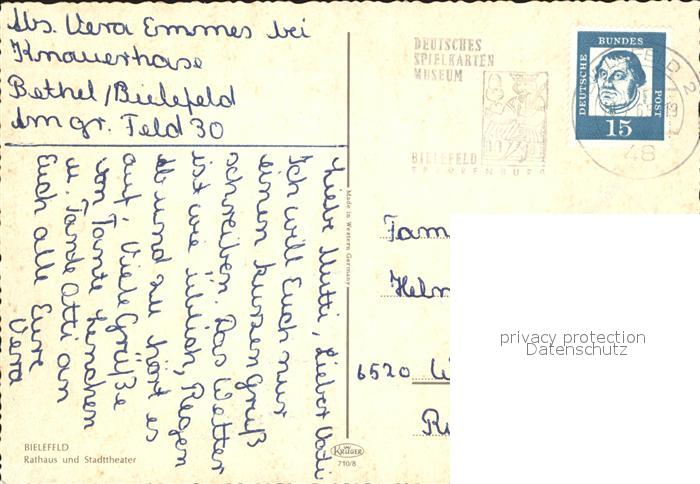 Abs. Vera Emmes bei
Knauerhase
Bethel/Bielefeld
Am gr. Feld 30
DEUTSCHES
SPIELKARTEN
MUSEUM
BIELEFELD
DEUTSCHE
BUNDES
POST
15
48
Liebe Mutti, Lieber Vati
Ich will Euch nur
einen kurzen Gruß
schreiben. Das Wetter
ist wie üblich, Regen
ab und zu hört es
auf. Viele Grüße
von Tante Lenchen
u. Tante Otti an
Euch alle Eure
Vera
Made in Western Germany
Fam
Helm
6520 W
privacy protection
Datenschutz
BIELEFELD
Rathaus und Stadttheater
KRÜGER
710/8